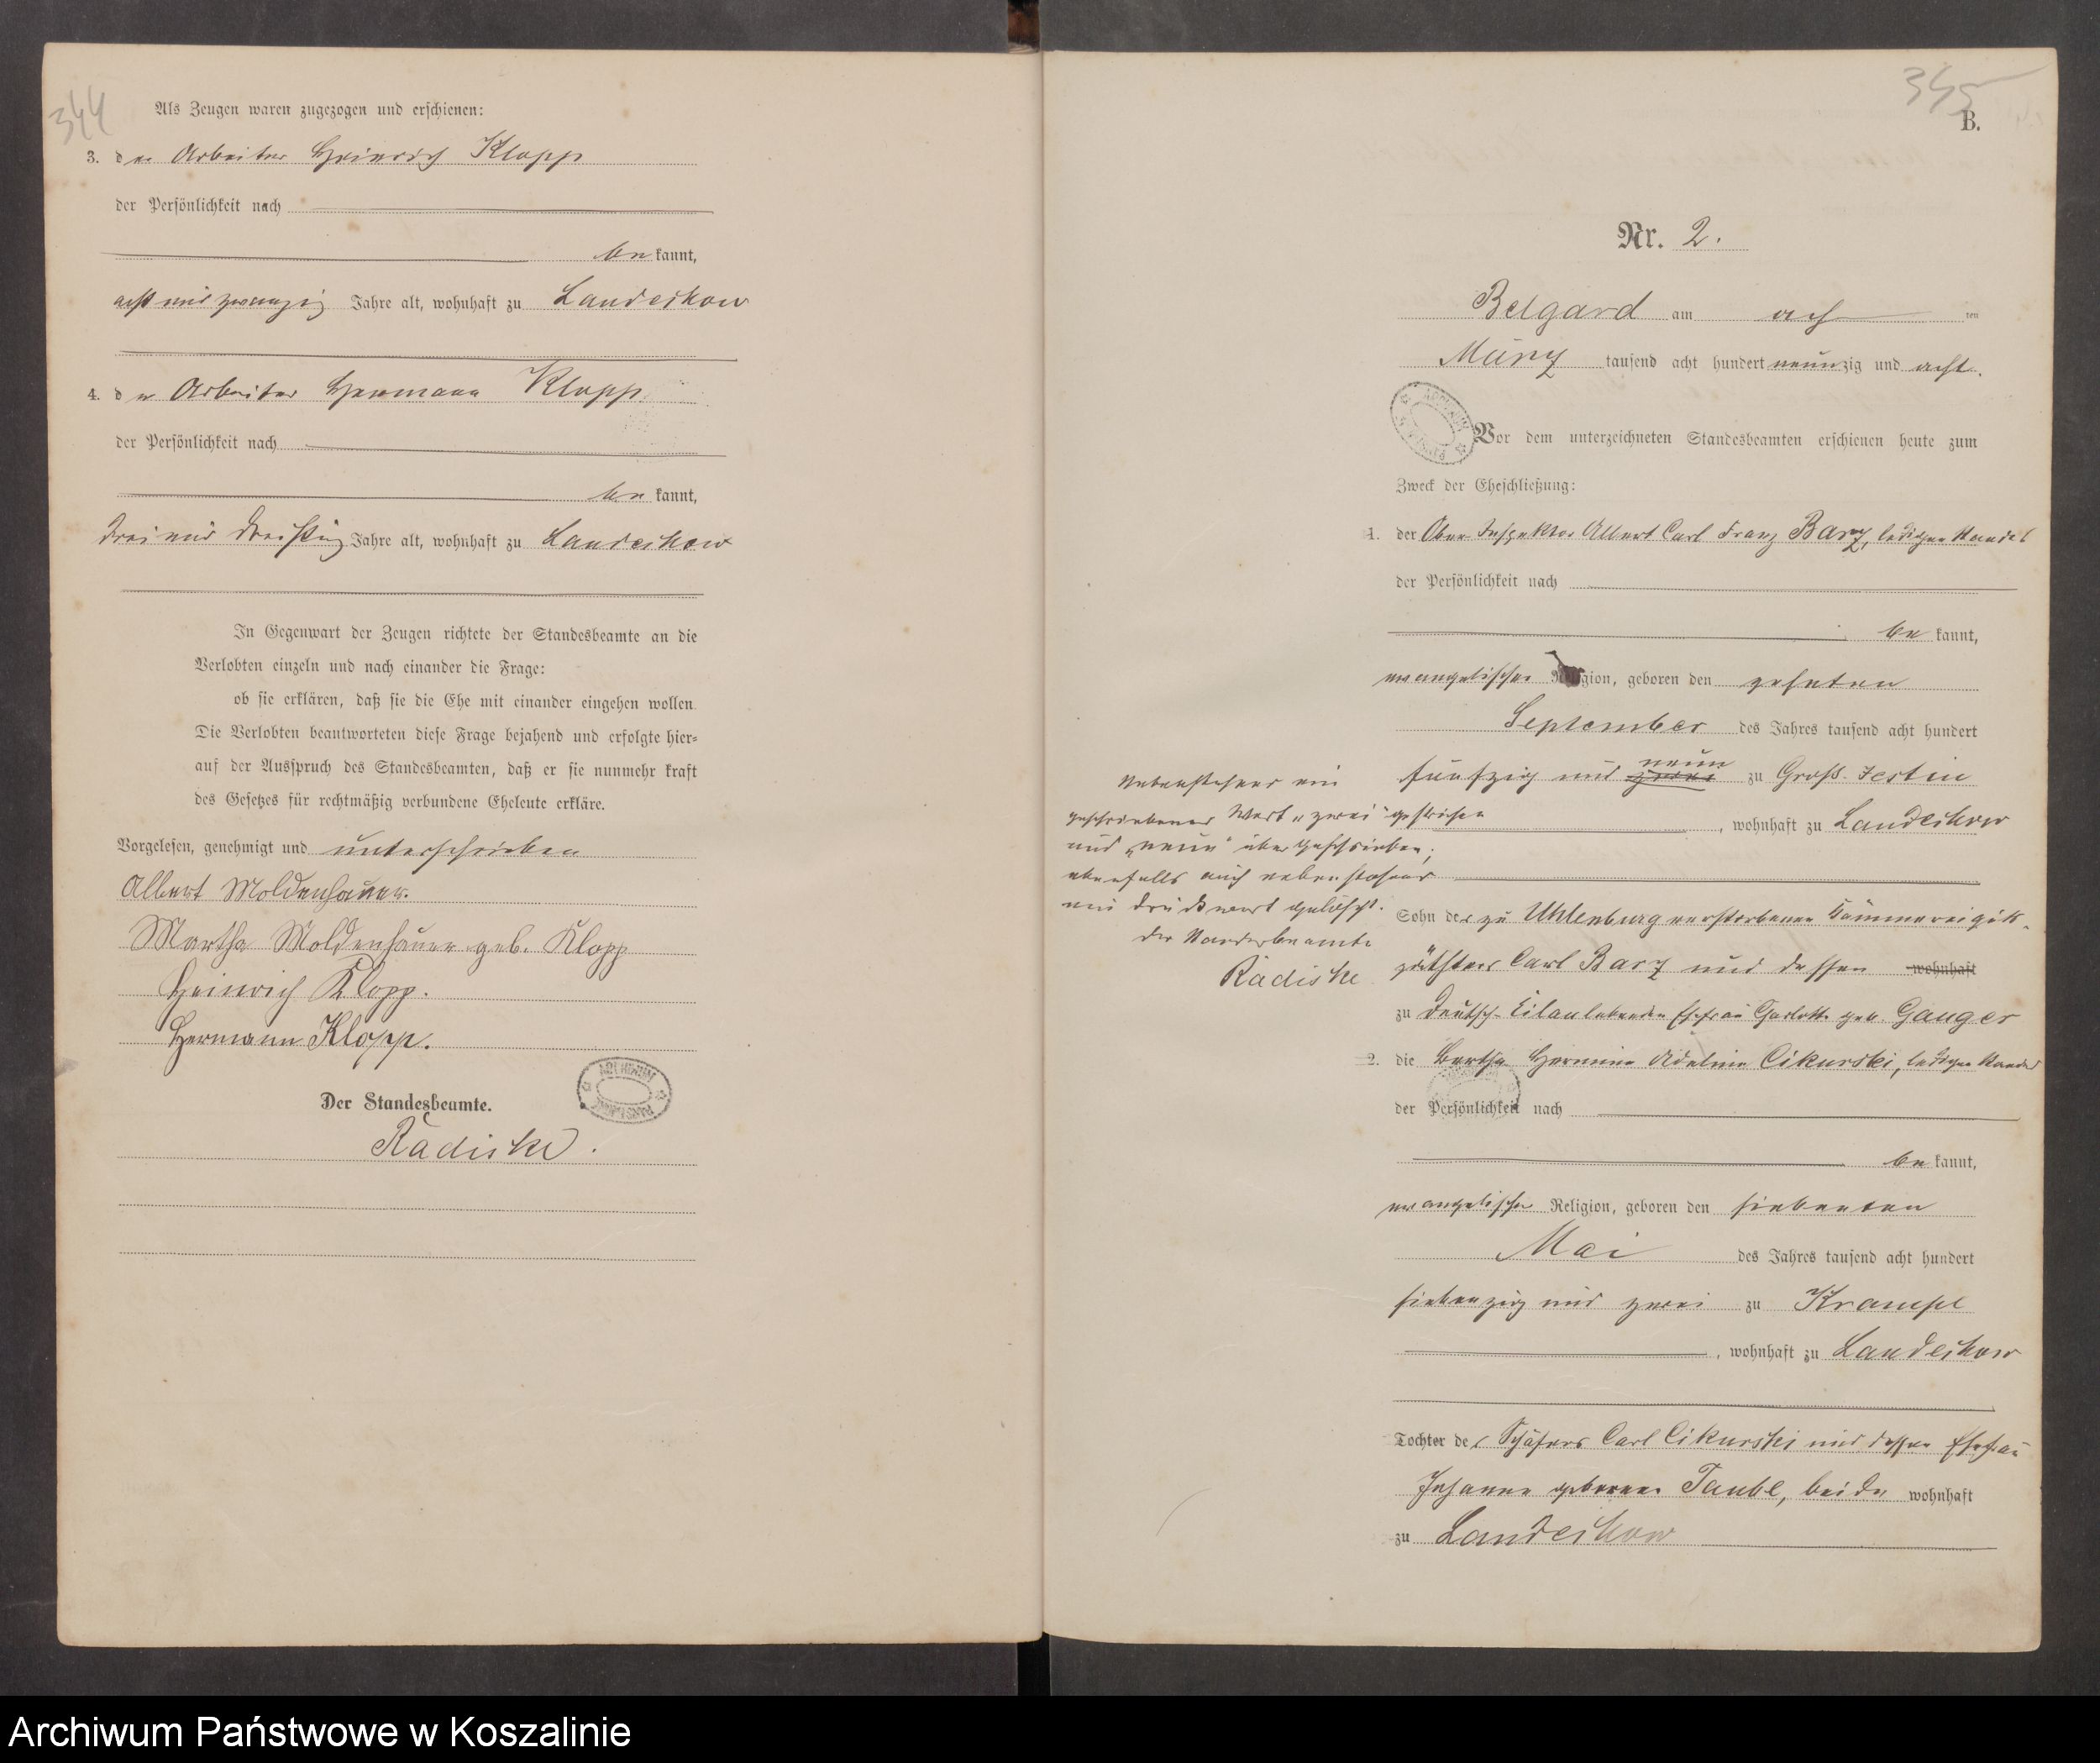 344
Als Zeugen waren zugezogen und erschienen:
3. der Arbeiter Heinrich Klopp
der Persönlichkeit nach
be kannt,
acht und zwanzig Jahre alt, wohnhaft zu Landeshow
4. der Arbeiter Hermann Klopp
der Persönlichkeit nach
be kannt,
drei und dreißig Jahre alt, wohnhaft zu Landeshow
In Gegenwart der Zeugen richtete der Standesbeamte an die
Verlobten einzeln und nach einander die Frage:
ob sie erklären, daß sie die Ehe mit einander eingehen wollen.
Die Verlobten beantworteten diese Frage bejahend und erfolgte hier-
auf der Ausspruch des Standesbeamten, daß er sie nunmehr kraft
des Gesetzes für rechtmäßig verbundene Eheleute erkläre.
Vorgelesen, genehmigt und unterschrieben
Albert Moldenhauer.
Martha Moldenhauer geb. Klopp
Heinrich Klopp.
Hermann Klopp.
Der Standesbeamte.
Radiske.
345
B.
Nr. 2.
Belgard am ach ten
März tausend acht hundert neunzig und acht.
Vor dem unterzeichneten Standesbeamten erschienen heute zum
Zweck der Eheschließung:
1. der Ober-Inspektor Albert Carl Franz Barz, ledigen Standes
der Persönlichkeit nach
be kannt,
evangelischer Religion, geboren den zehnten
September des Jahres tausend acht hundert
neun
fünfzig und zwei zu Groß-Jestin
, wohnhaft zu Landeshow
Nebenstehend ein
geschriebenes Wort „zwei" gestrichen
und „neun" übergeschrieben;
ebenfalls auch nebenstehend
ein Druckwort gelöscht.
Der Standesbeamte
Radiske
Sohn des zu Uhlenburg verstorbenen Kämmereiguts-
pächters Carl Barz und dessen wohnhaft
zu Deutsch-Eilau lebenden Ehefrau Charlotte geb. Gauger
2. die Bertha Hermine Adeline Cikurski, ledigen Standes
der Persönlichkeit nach
be kannt,
evangelischer Religion, geboren den siebenten
Mai des Jahres tausend acht hundert
siebenzig und zwei zu Krampe
, wohnhaft zu Landeshow
Tochter des Schäfers Carl Cikurski und dessen Ehefrau
Johanne geborene Taube, beide wohnhaft
zu Landeshow
Archiwum Państwowe w Koszalinie